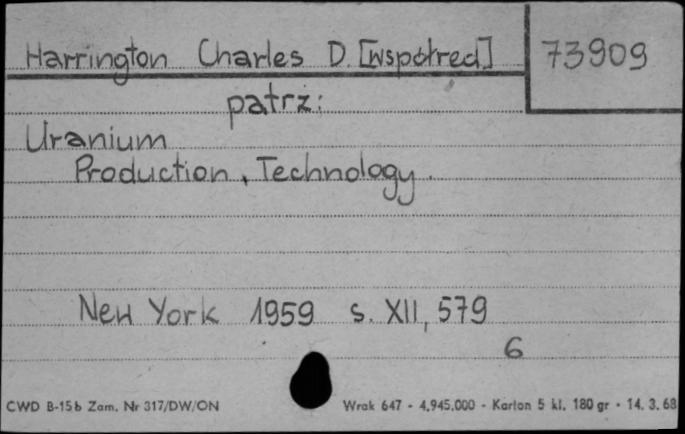 Harrington Charles D. [współred] 73909
patrz:
Uranium
Production, Technology.
New York 1959 s. XII, 579
6
CWD B-15b Zam. Nr 317/DW/ON Wrak 647 - 4.945.000 - Karton 5 kl. 180 gr - 14. 3. 68